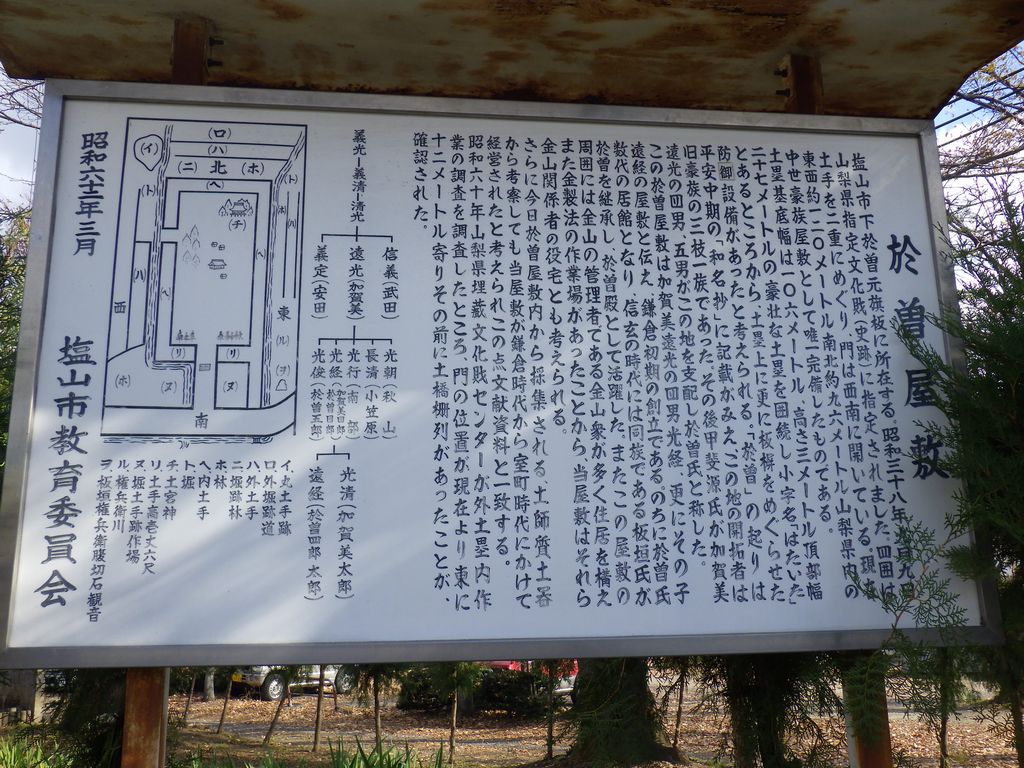 於曽屋敷
塩山市下於曽元旗板に所在する。昭和三十八年九月九日
山梨県指定文化財(史跡)に指定されました。四囲は
土手を二重にめぐり、門は西南に開いている。現在
東西約一二〇メートル、南北約九六メートル山梨県内の
中世豪族屋敷として唯一完備したものである。
土塁基底幅は一〇六メートル、高さ三メートル頂部幅
二十七メートルの豪壮な土塁を囲続し小字名はたいた
とあるところから土塁上に更に板塀をめぐらせた
防御設備があったと考えられる。「於曽」の起りは
平安中期の「和名抄」に記載がみえ、この地の開拓者は
旧豪族の三枝一族であった。その後甲斐源氏が加賀美
遠光の四男、五男がこの地を支配し於曽氏と称した。
この於曽屋敷は加賀美遠光の四男光経、更にその子
遠経の屋敷と伝え、鎌倉初期の創立であるのちに於曽氏
数代の居館となり、信玄の時代には同族である板垣氏が
於曽を継承し、於曽殿として活躍した。またこの屋敷の
周囲には金山の管理者である金山衆が多く住居を構え
また金製法の作業場があったことから、当屋敷はそれら
金山関係者の役宅とも考えられる。
さらに今日於曽屋敷内から採集される土師質土器
から考察しても当屋敷が鎌倉時代から室町時代にかけて
経営されたと考えられこの点文献資料と一致する。
昭和六十年山梨県埋蔵文化財センターが外土塁内作
業の調査を調査したところ、門の位置が現在より東に
十二メートル寄りその前に土橋柵列があったことが、
確認された。
義光―義清―清光
信義(武田)
遠光(加賀美)
義定(安田)
光朝(秋山)
長清(小笠原)
光行(南部)
光経(加賀美四郎)(於曽四郎)
光俊(於曽五郎)
光清(加賀美太郎)
遠経(於曽四郎太郎)
(イ)
(ロ)
(ニ)
北
(ホ)
(ヘ)
(ト)
(ト)
(ホ)
(ハ)
(ヘ)
(チ)
(ハ)
(ハ)
西
東
(ル)
(ヲ)
(リ)
(リ)
(ヌ)
(ヌ)
(ホ)
南
イ、丸土手跡
ロ、外堀跡道
ハ、外土手
ニ、堀跡林
ホ、林
ヘ、内土手
ト、堀
チ、土宮神
リ、土手高壱丈六尺
ヌ、堀土手跡作場
ル、権兵衛川
ヲ、板垣権兵衛腹切石観音
昭和六十二年三月
塩山市教育委員会